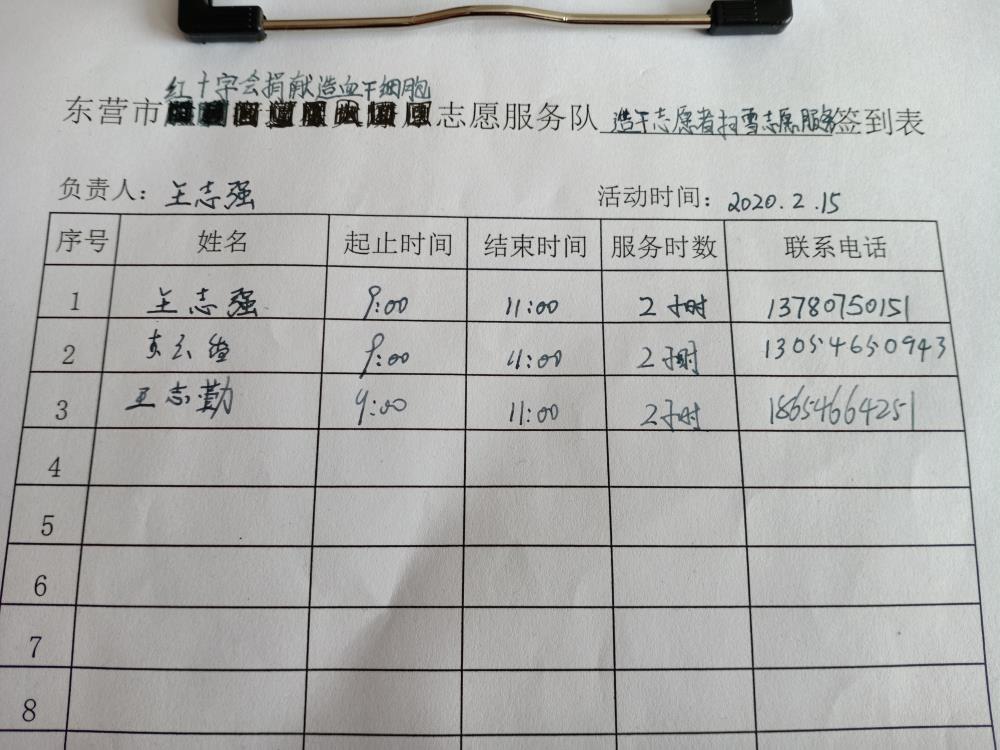 红十字会捐献造血干细胞
东营市志愿服务队 造干志愿者扫雪志愿服务签到表
负责人：王志强 活动时间：2020.2.15
序号 姓名 起止时间 结束时间 服务时数 联系电话
1 王志强 9:00 11:00 2小时 13780750151
2 9:00 11:00 2小时 13054650943
3 王志勤 9:00 11:00 2小时 18654664251
4
5
6
7
8